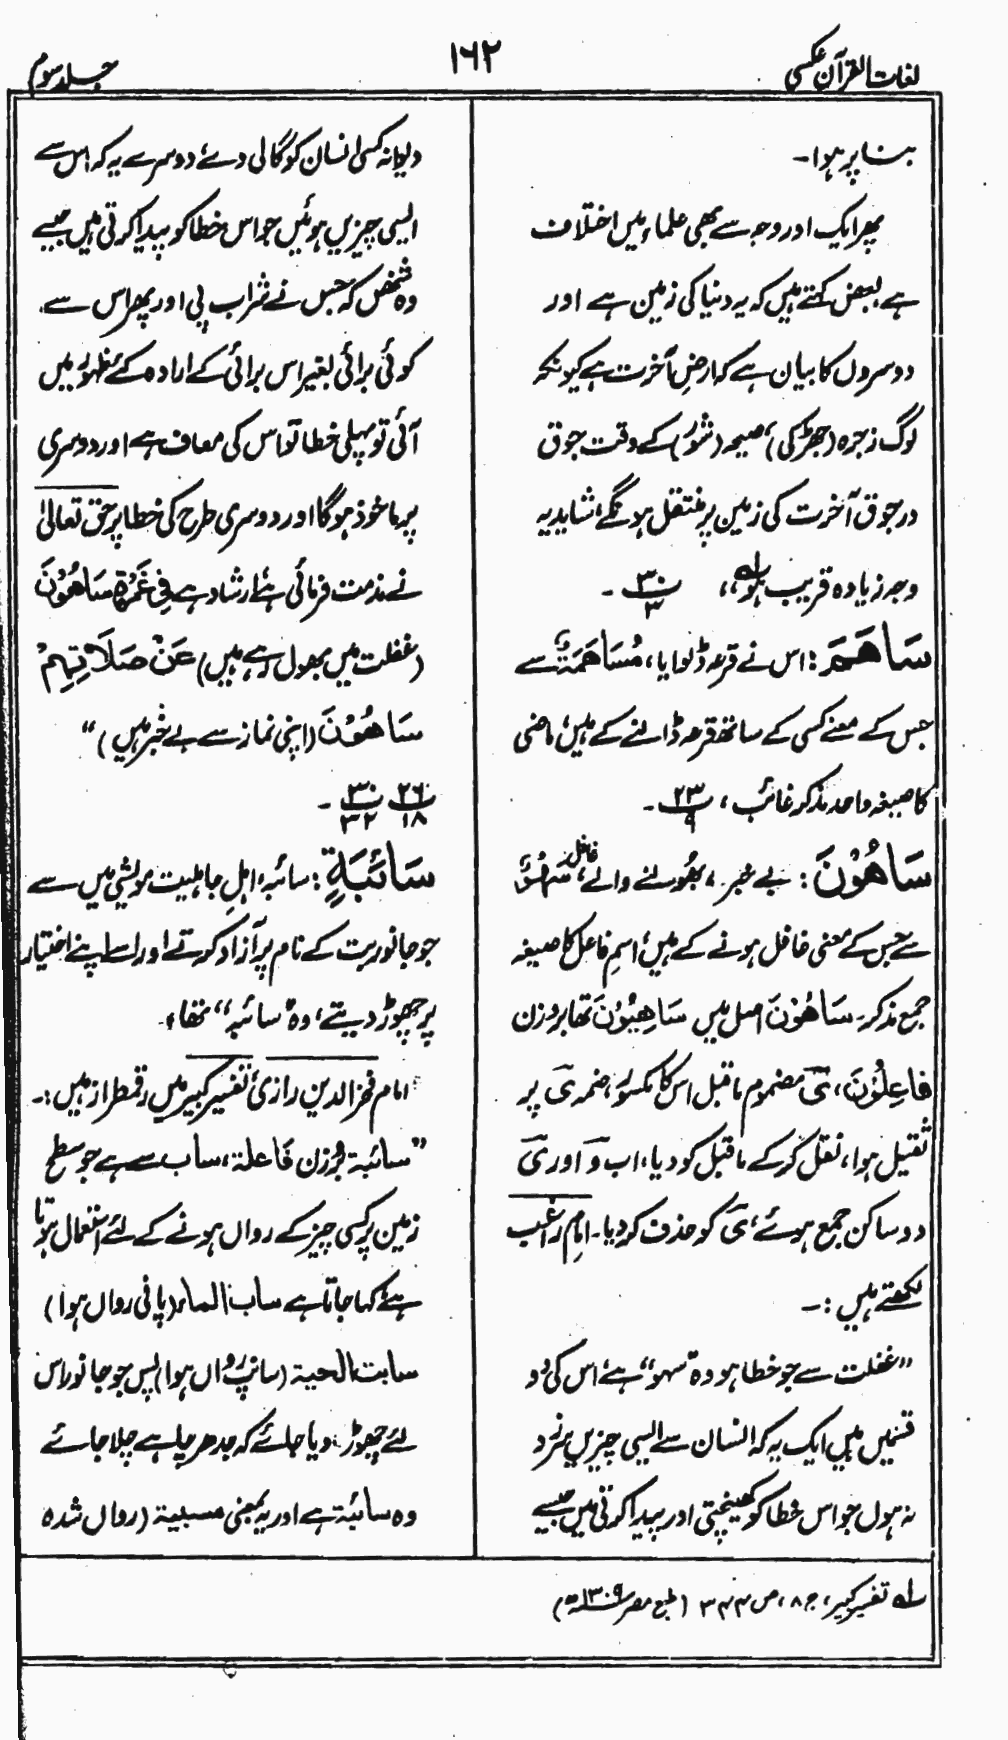 لغات القرآن عکسی
۱۶۲
جلد سوم
بنا پر ہوا۔
پھر ایک اور وجہ سے بھی علماء میں اختلاف
ہے بعض کہتے ہیں کہ یہ دنیا کی زمین ہے اور
دوسروں کا بیان ہے کہ ارضِ آخرت ہے کیونکہ
لوگ زجرہ (جھڑکی)، صیحہ (شور) کے وقت جوق
در جوق آخرت کی زمین پر منتقل ہونگے، شاید یہ
وجہ زیادہ قریب ہو،، ۳۰/۳ ۔
سَاهَمَ: اس نے قرعہ ڈلوایا، مُسَاهَمَةٌ سے
جس کے معنے کسی کے ساتھ قرعہ ڈالنے کے ہیں، ماضی
کا صیغہ واحد مذکر غائب، ۲۳/۹ ۔
سَاهُوْنَ: بے خبر، بھولنے والے، غافل، سَهْوٌ
سے جس کے معنی غافل ہونے کے ہیں، اسم فاعل کا صیغہ
جمع مذکر، سَاهُوْنَ اصل میں سَاهِيُوْنَ تھا بروزن
فَاعِلُوْنَ، ی مضموم ماقبل اس کا مکسور، ضمہ ی پر
ثقیل ہوا، نقل کرکے ماقبل کو دیا، اب و اور ی
دو ساکن جمع ہوئے، ی کو حذف کردیا۔ امام راغب
لکھتے ہیں :۔
”غفلت سے جو خطا ہو وہ ”سہو“ ہے، اس کی دو
قسمیں ہیں ایک یہ کہ انسان سے ایسی چیزیں سرزد
نہ ہوں جو اس خطا کو کھینچتی اور پیدا کرتی ہیں جیسے
دیوانہ کسی انسان کو گالی دے، دوسرے یہ کہ اس سے
ایسی چیزیں ہوئیں جو اس خطا کو پیدا کرتی ہیں جیسے
وہ شخص کہ جس نے شراب پی اور پھر اس سے
کوئی برائی بغیر اس برائی کے ارادہ کے ظہور میں
آئی تو پہلی خطا تو اس کی معاف ہے اور دوسری
پر ماخوذ ہوگا اور دوسری طرح کی خطا پر حق تعالیٰ
نے مذمت فرمائی ہے، ارشاد ہے فِي غَمْرَةٍ سَاهُوْنَ
(غفلت میں بھول رہے ہیں) عَنْ صَلَاتِهِمْ
سَاهُوْنَ (اپنی نماز سے بے خبر ہیں)“
۲۶/۱۸ ۳۰/۳۲ ۔
سَائِبَةٍ: سائبہ، اہلِ جاہلیت مویشی میں سے
جو جانور بت کے نام پر آزاد کرتے اور اسے اپنے اختیار
پر چھوڑ دیتے، وہ ”سائبہ“ تھا،
امام فخر الدین رازی تفسیر کبیر میں رقمطراز ہیں :۔
”سائبة بروزن فاعلة، ساب سے ہے جو سطح
زمین پر کسی چیز کے رواں ہونے کے لئے استعمال ہوتا
ہے، کہا جاتا ہے ساب الماء (پانی رواں ہوا)
سابت الحية (سانپ رواں ہوا) پس جو جانور اس
لئے چھوڑ دیا جائے کہ جدھر چاہے چلا جائے
وہ سائبة ہے اور یہ بمعنی مسیبة (رواں شدہ
لہ تفسیر کبیر، ج ۸، ص ۳۴۴ (طبع مصر ۱۳۰۹ھ)